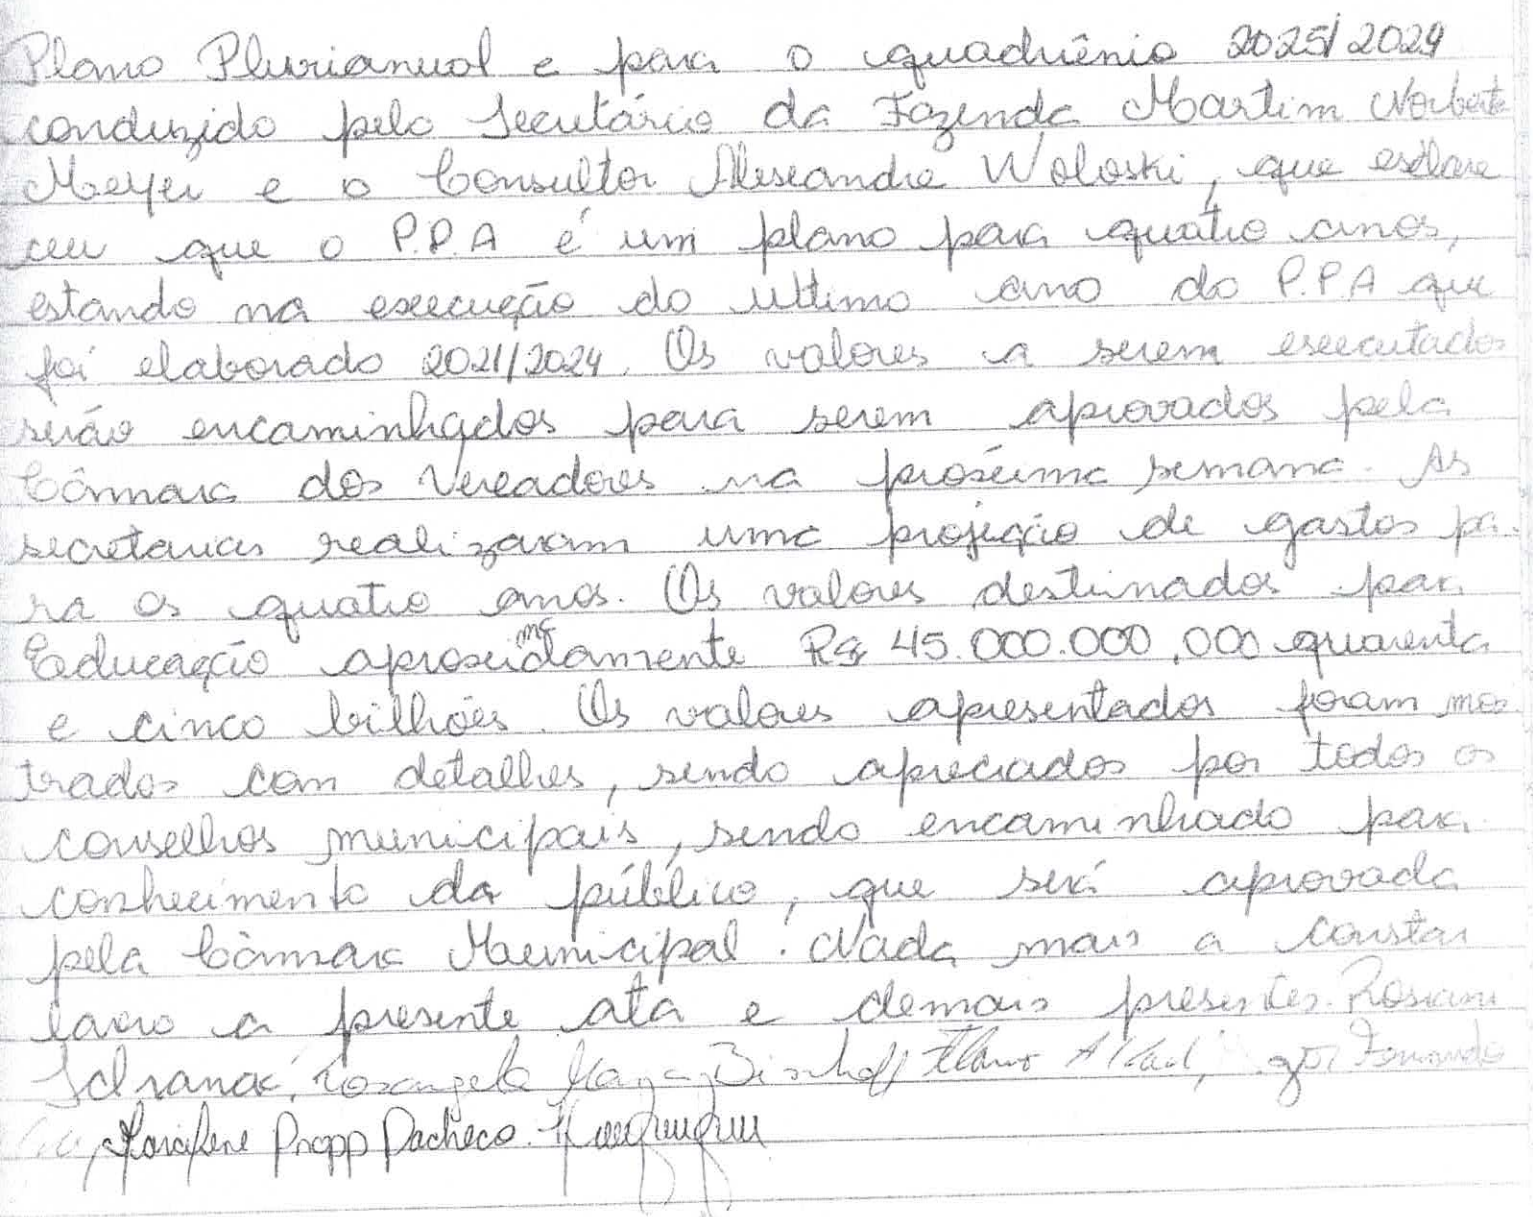 Plano Plurianual e para o quadriênio 2025/2029
conduzido pelo Secretário da Fazenda Martim Norberto
Meyer e o Consultor Alexandre Woloski, que esclare
ceu que o P.P.A é um plano para quatro anos,
estando na execução do ultimo ano do P.P.A que
foi elaborado 2021/2024. Os valores a serem executados
serão encaminhados para serem aprovados pela
Câmara dos Vereadores na próxima semana. As
secretarias realizaram uma projeção de gastos pa
ra os quatro anos. Os valores destinados para
Educação aproximadamente R$ 45.000.000,000 quarenta
e cinco bilhões. Os valores apresentados foram mos
trados com detalhes, sendo apreciados por todos os
conselhos municipais, sendo encaminhado para
conhecimento do público, que será aprovada
pela Câmara Municipal. Nada mais a constar
lavro a presente ata e demais presentes. Rosiani
Schranck, Rosangela Bischoff Fernando
Propp Pacheco.